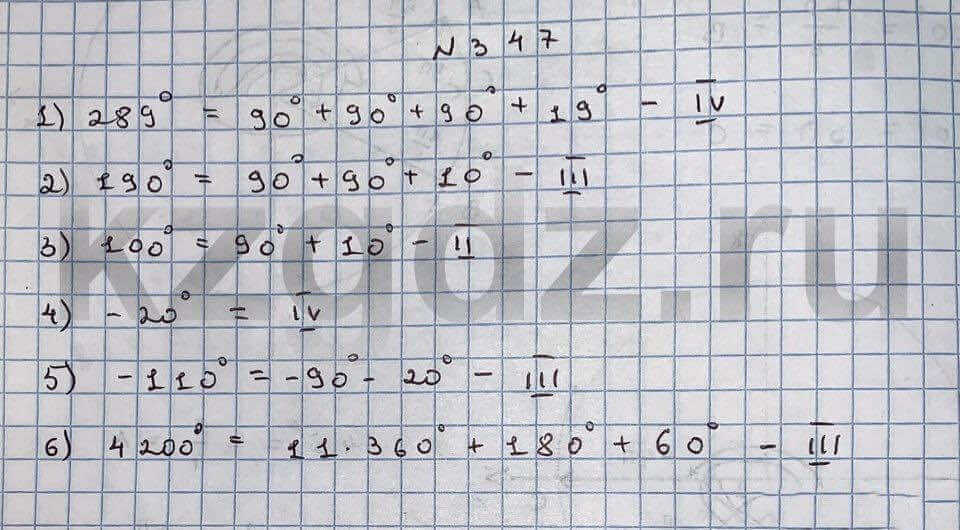 N 347
1) 289° = 90° + 90° + 90° + 19° - IV
2) 190° = 90° + 90° + 10° - III
3) 100° = 90° + 10° - II
kzgdz.ru
4) -20° = IV
5) -110° = -90° - 20° - III
6) 4200° = 11·360° + 180° + 60° - III